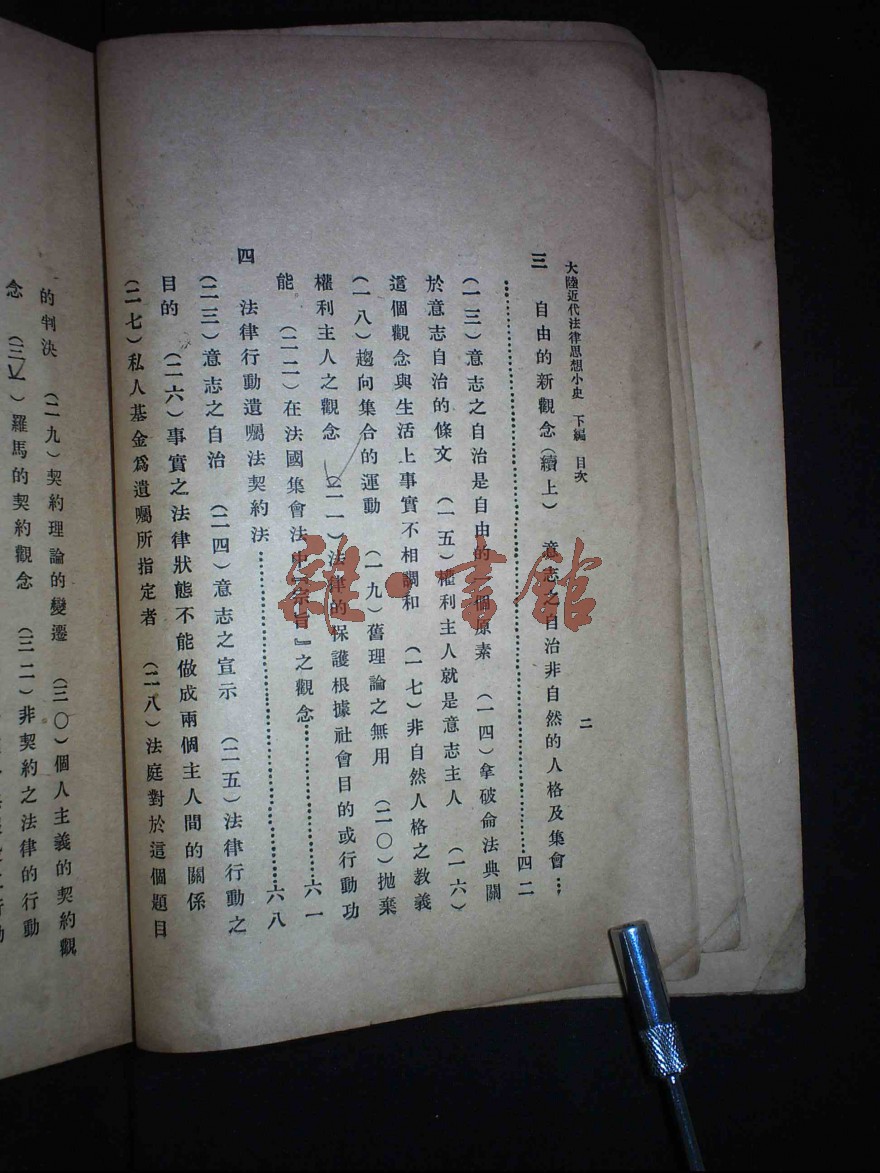 大陸近代法律思想小史 下編 目次 二
三 自由的新觀念(續上) 意志之自治非自然的人格及集會…
……四二
(一三)意志之自治是自由的一個原素 (一四)拿破命法典關
於意志自治的條文 (一五)權利主人就是意志主人 (一六)
這個觀念與生活上事實不相調和 (一七)非自然人格之教義
(一八)趨向集合的運動 (一九)舊理論之無用 (二〇)抛棄
權利主人之觀念 (二一)法律的保護根據社會目的或行動功
能 (二二)在法國集會法中『宗旨』之觀念……六一
四 法律行動遺囑法契約法……六八
(二三)意志之自治 (二四)意志之宣示 (二五)法律行動之
目的 (二六)事實之法律狀態不能做成兩個主人間的關係
(二七)私人基金爲遺囑所指定者 (二八)法庭對於這個題目
的判決 (二九)契約理論的變遷 (三〇)個人主義的契約觀
念 (三一)羅馬的契約觀念 (三二)非契約之法律的行動
雜·書館